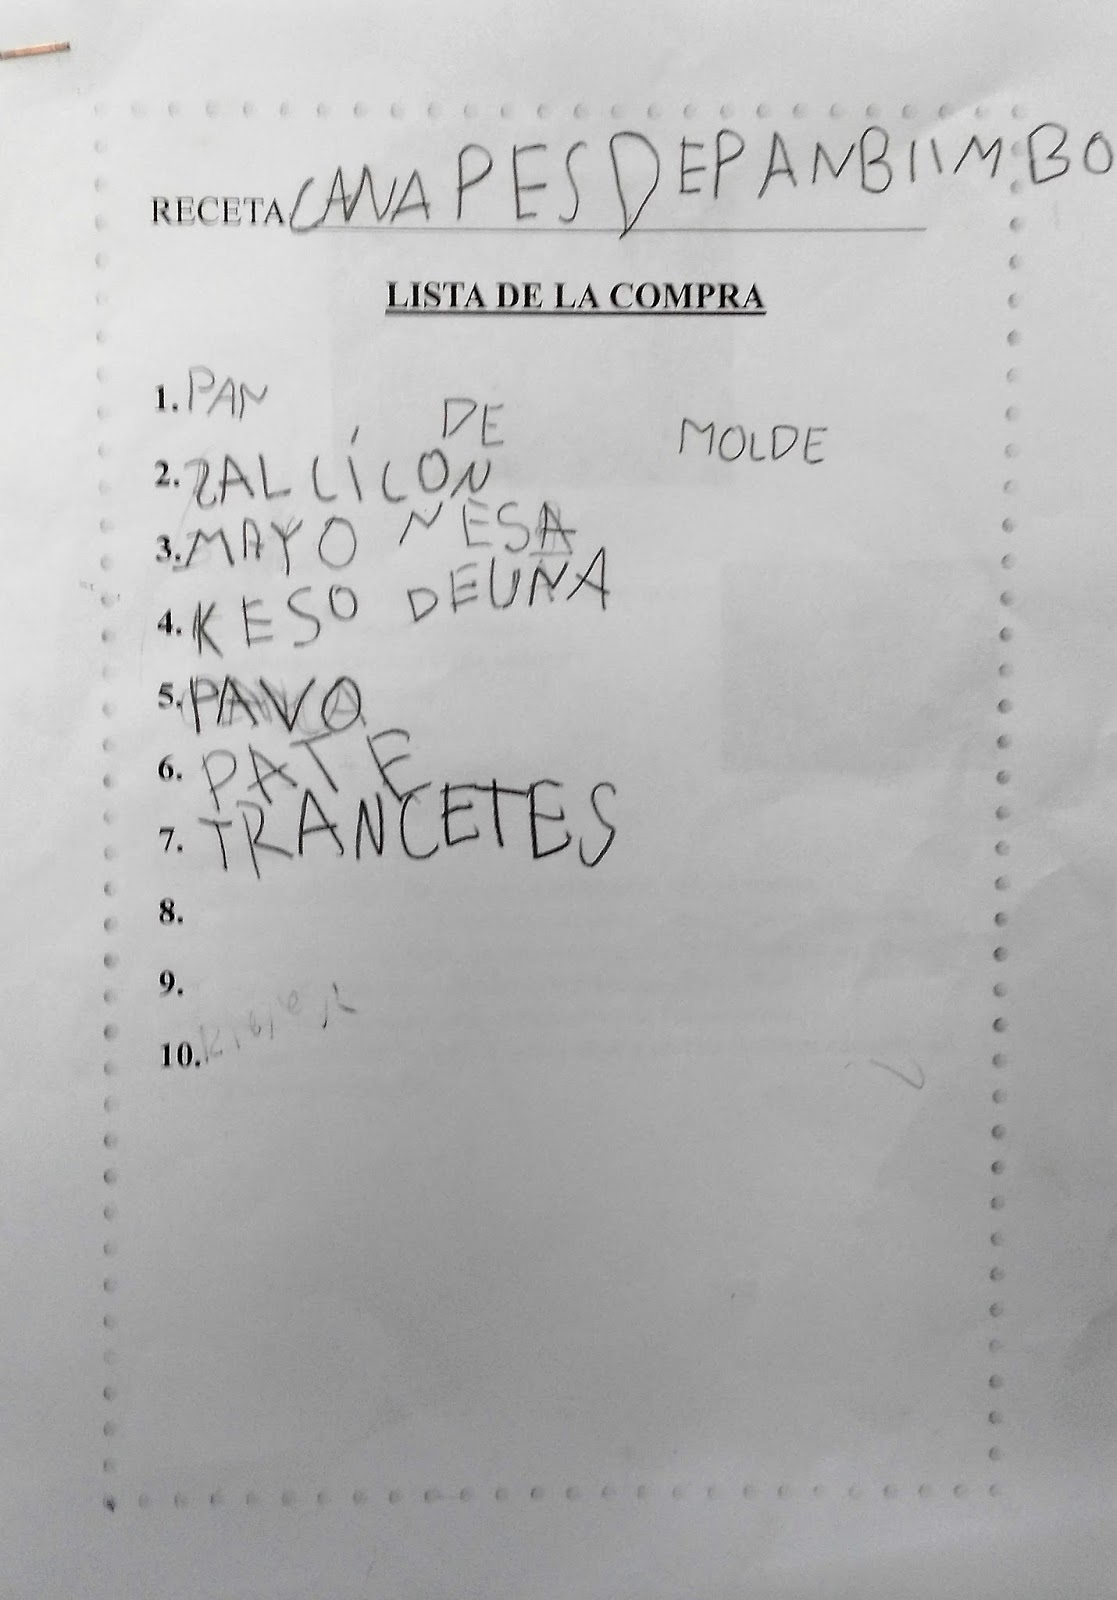 RECETA CANAPESDEPANBIIMBO
LISTA DE LA COMPRA
1. PAN DE MOLDE
2. ZALCÍCON
3. MAYONESA
4. KESO DEUÑA
5. PAVO
6. PATE
7. TRANCETES
8.
9.
10.